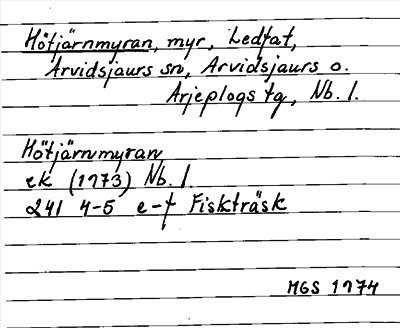 Hötjärnmyran, myr, Ledfat,
Arvidsjaurs sn, Arvidsjaurs o.
Arjeplogs tg, Nb. l.
Hötjärnmyran
ek (1973) Nb. l.
241 4-5 e-f Fiskträsk
MGS 1974